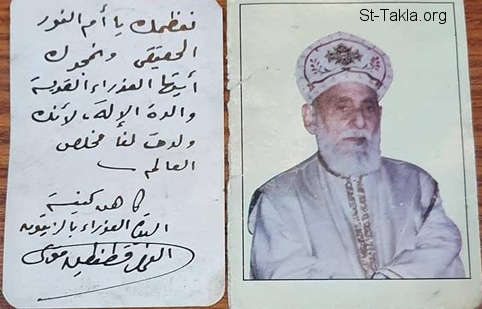 St-Takla.org
نعظمك يا أم النور
الحقيقى ونمجدك
أيتها العذراء القديسة
والدة الإله، لأنك
ولدت لنا مخلص
العالم
كاهن كنيسة
السيدة العذراء بالزيتون
القمص قسطنطين موسى